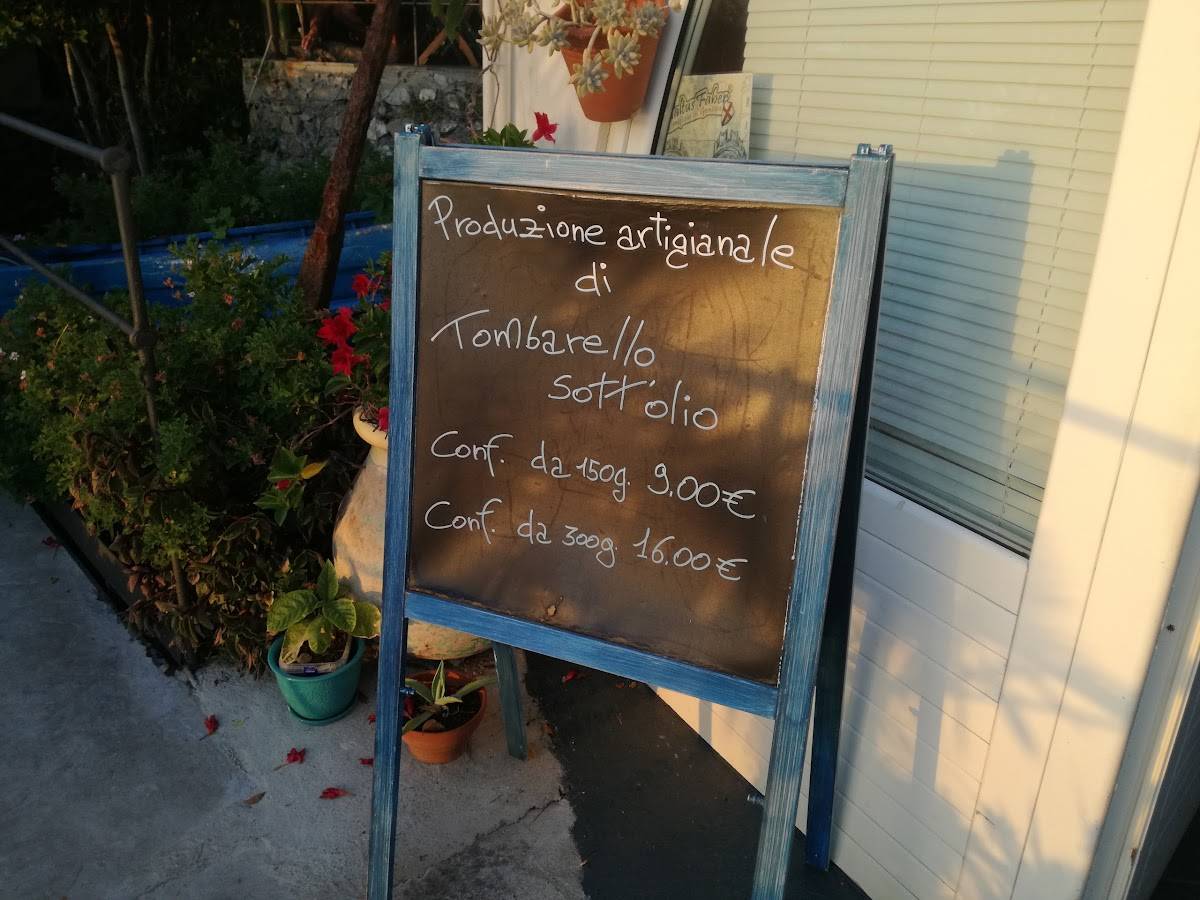 Produzione artigianale
di
Tombarello
sott'olio
Conf. da 150g. 9.00€
Conf. da 300g. 16.00€